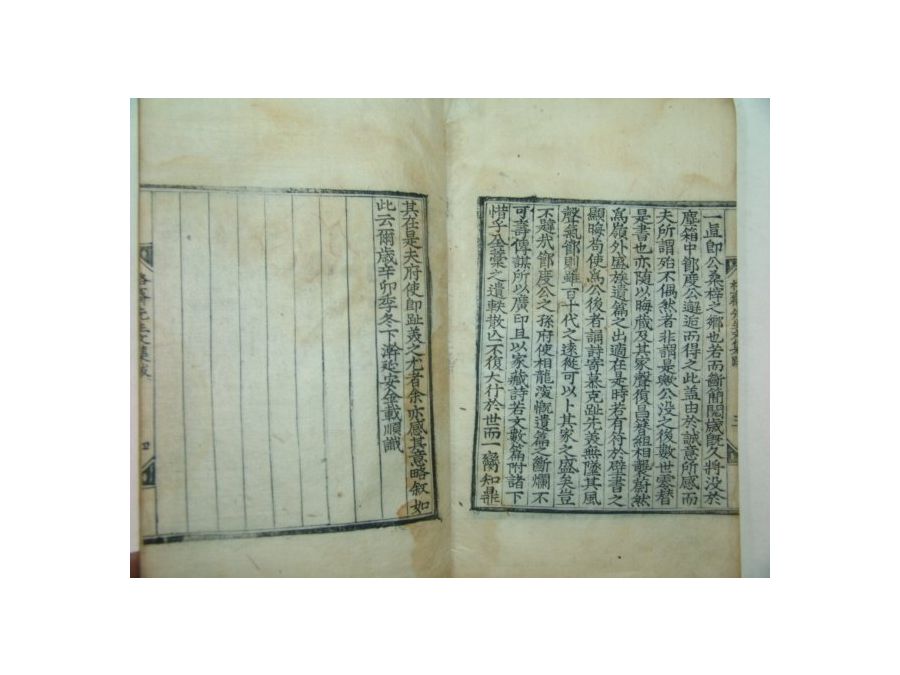 一直卽公桑梓之鄕也若而斷簡閱歲旣久將没於
塵箱中鄭度公邂逅而得之此盖由於誠意所感而
夫所謂殆不偶然者非謂是歟公没之後數世零替
是書也亦隨以晦歲及其家聲復昌簪組相襲蔚然
爲嶺外盛族遺篇之出適在是時若有符於壁書之
顯晦苟使爲公後者誦詩寄慕克趾先羙無墜其風
聲氣節則雖百十代之遠從可以卜其家之盛矣豈
不韙哉鄭度公之孫府使相龍㴱慨遺篇之斷爛不
可壽傳謀所以廣印且以家藏詩若文數篇附諸下
惜乎全藁之遺軼散亾不復大行於世而一臠知鼎
其在是夫府使卽趾羙之尤者余亦感其意略叙如
此云爾歲辛卯季冬下澣延安金載順識
先生文集跋
四